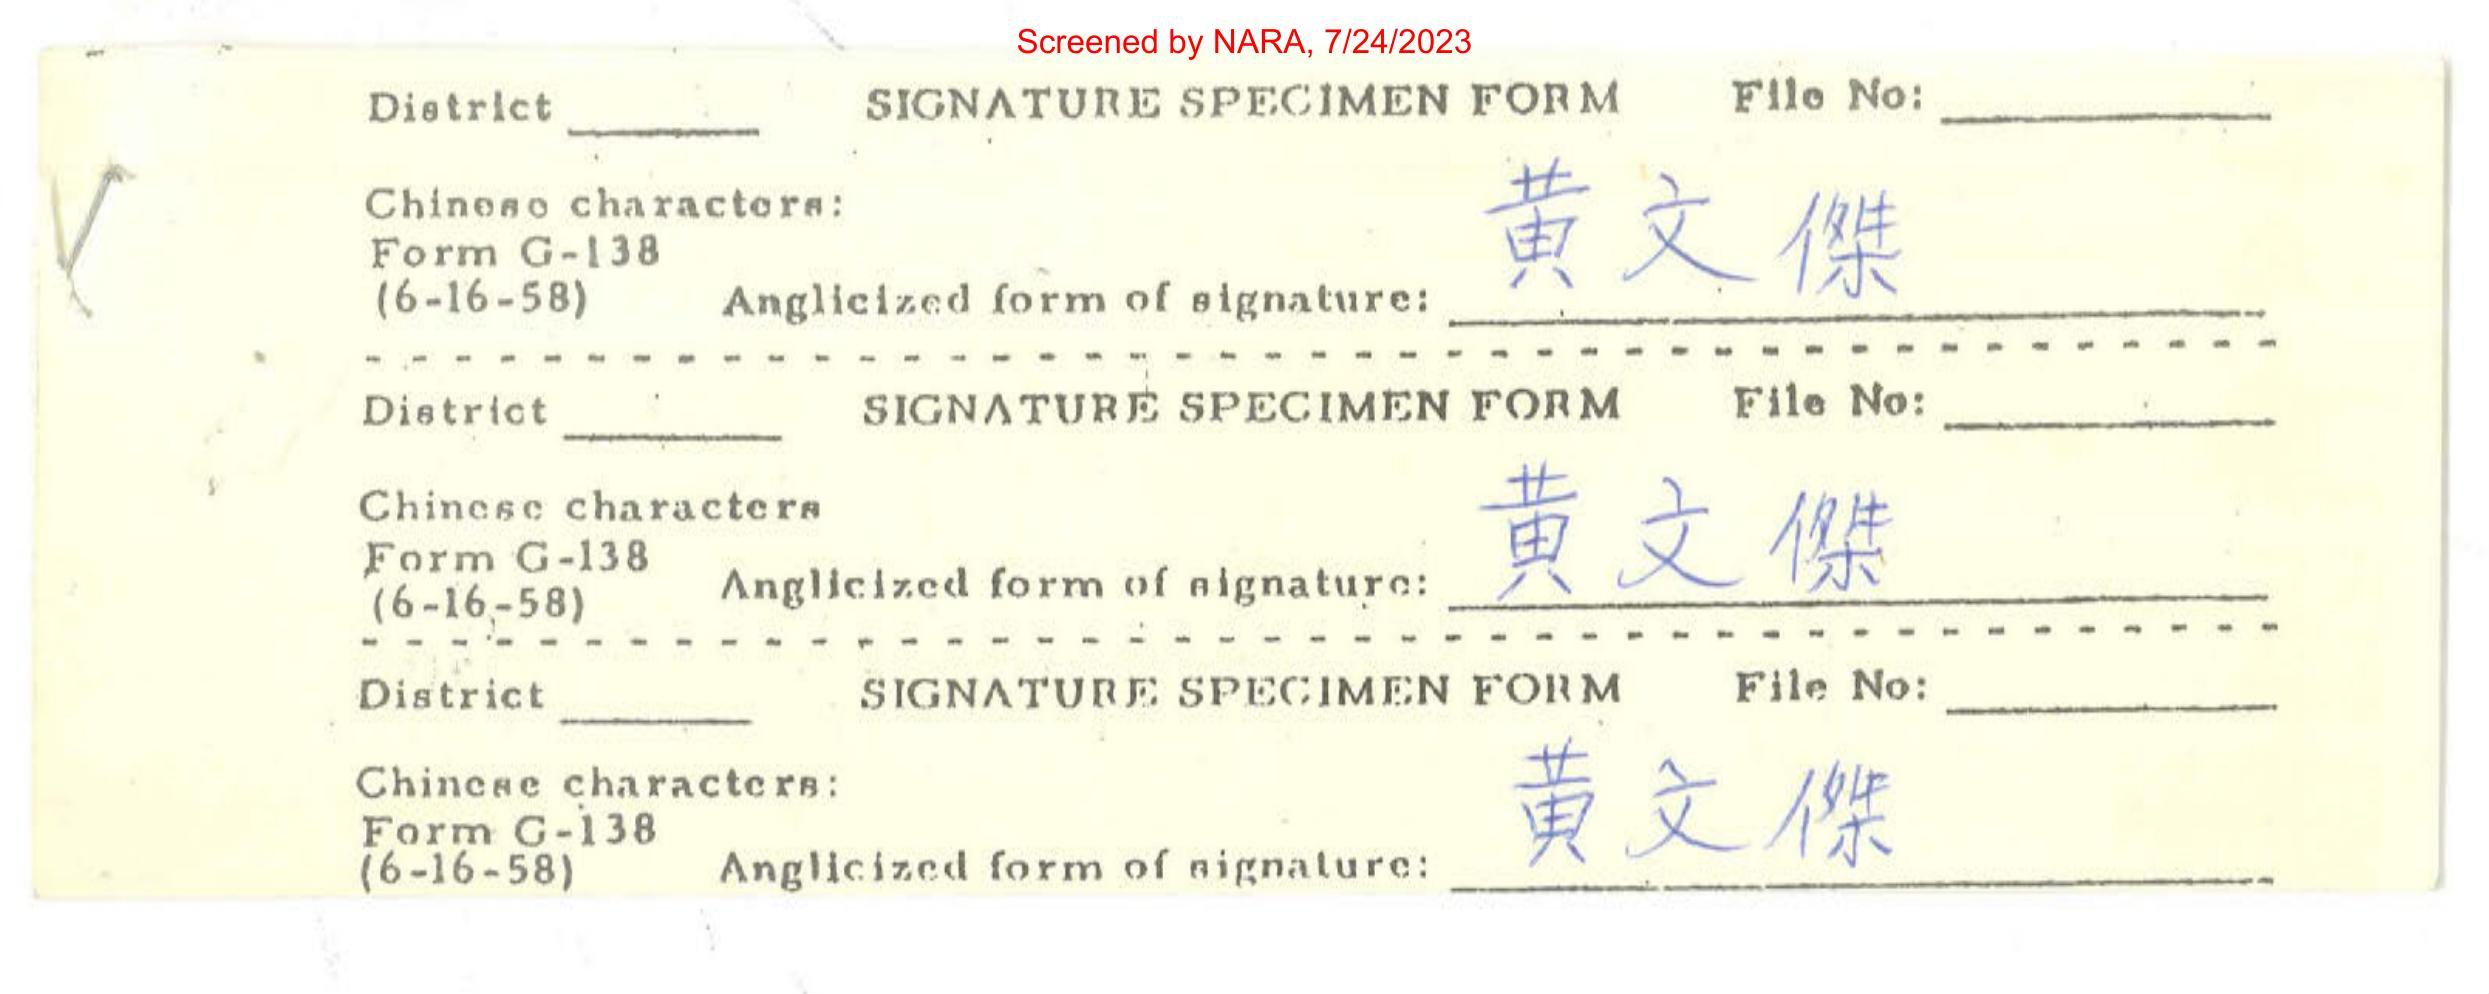 Screened by NARA, 7/24/2023
District SIGNATURE SPECIMEN FORM File No:
Chinese characters:
黃文傑
Form G-138
(6-16-58) Anglicized form of signature:
District SIGNATURE SPECIMEN FORM File No:
Chinese characters
黃文傑
Form G-138
(6-16-58) Anglicized form of signature:
District SIGNATURE SPECIMEN FORM File No:
Chinese characters:
黃文傑
Form G-138
(6-16-58) Anglicized form of signature: